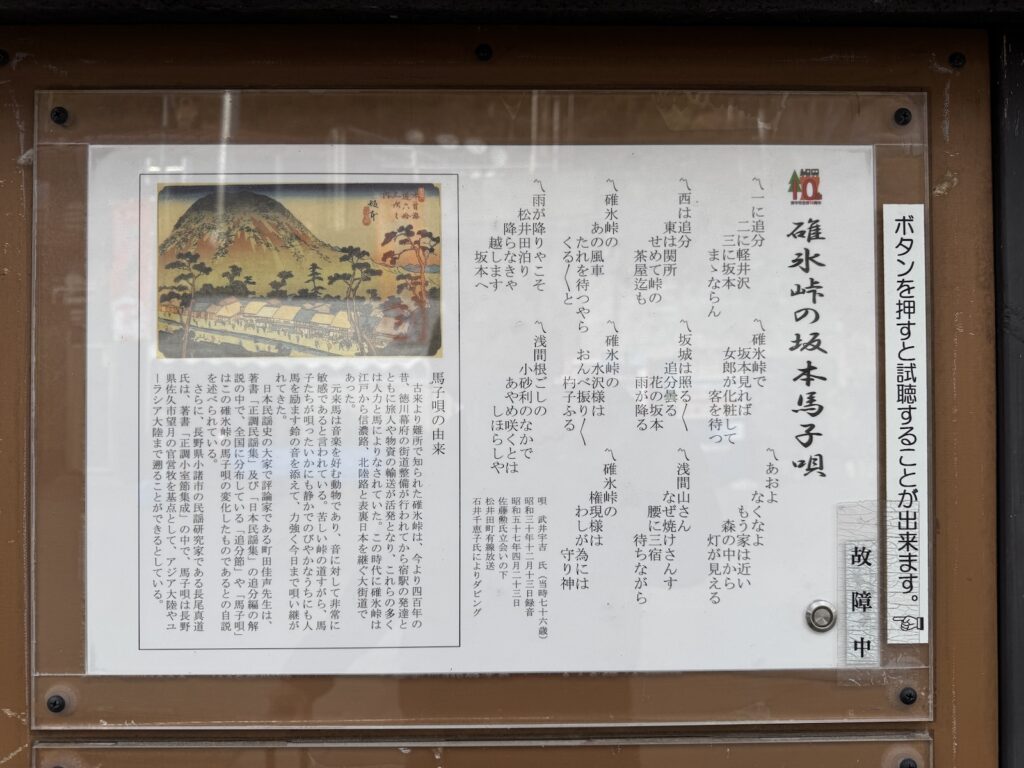 ボタンを押すと試聴することが出来ます。
故障中
碓氷峠の坂本馬子唄
〽一に追分
二に軽井沢
三に坂本
まゝならん
〽碓氷峠で
坂本見れば
女郎が化粧して
客を待つ
〽あおよ
なくなよ
もう家は近い
森の中から
灯が見える
〽西は追分
東は関所
せめて峠の
茶屋迄も
〽坂城は照る〱
追分曇る
花の坂本
雨が降る
〽浅間山さん
なぜ焼けさんす
腰に三宿
待ちながら
〽碓氷峠の
あの風車
たれを待つやら
くる〱と
〽碓氷峠の
水沢様は
おんべ振り〱
杓子ふる
〽碓氷峠の
権現様は
わしが為には
守り神
〽雨が降りやこそ
松井田泊り
降らなきゃ
越します
坂本へ
〽浅間根ごしの
小砂利のなかで
あやめ咲くとは
しほらしや
唄 武井宇吉 氏(当時七十六歳)
昭和三十年十二月十三日録音
昭和五十七年四月二十三日
佐藤勲氏立会いの下
松井田町有線放送
石井千恵子氏によりダビング
馬子唄の由来
古来より難所で知られた碓氷峠は、今より四百年の
昔、徳川幕府の街道整備が行われてから宿駅の発達と
ともに旅人や物資の輸送が活発となり、これらの多く
は人力と馬によりなされていた。この時代に碓氷峠は
江戸から信濃路、北陸路と表裏日本を継ぐ大街道で
あった。
元来馬は音楽を好む動物であり、音に対して非常に
敏感であると言われている。苦しい峠の道すがら、馬
子たちが唄ったいかにも静かでのびやかなうちにも人
馬を励ます鈴の音を添えて、力強く今日まで唄い継が
れてきた。
日本民謡史の大家で評論家である町田佳声先生は、
著書「正調民謡集」及び「日本民謡集」の追分編の解
説の中で、全国に分布している「追分節」や「馬子唄」
はこの碓氷峠の馬子唄の変化したものであるとの自説
を述べられている。
さらに、長野県小諸市の民謡研究家である長尾真道
氏は、著書「正調小室節集成」の中で、馬子唄は長野
県佐久市望月の官営牧を基点として、アジア大陸やユ
ーラシア大陸まで遡ることができるとしている。